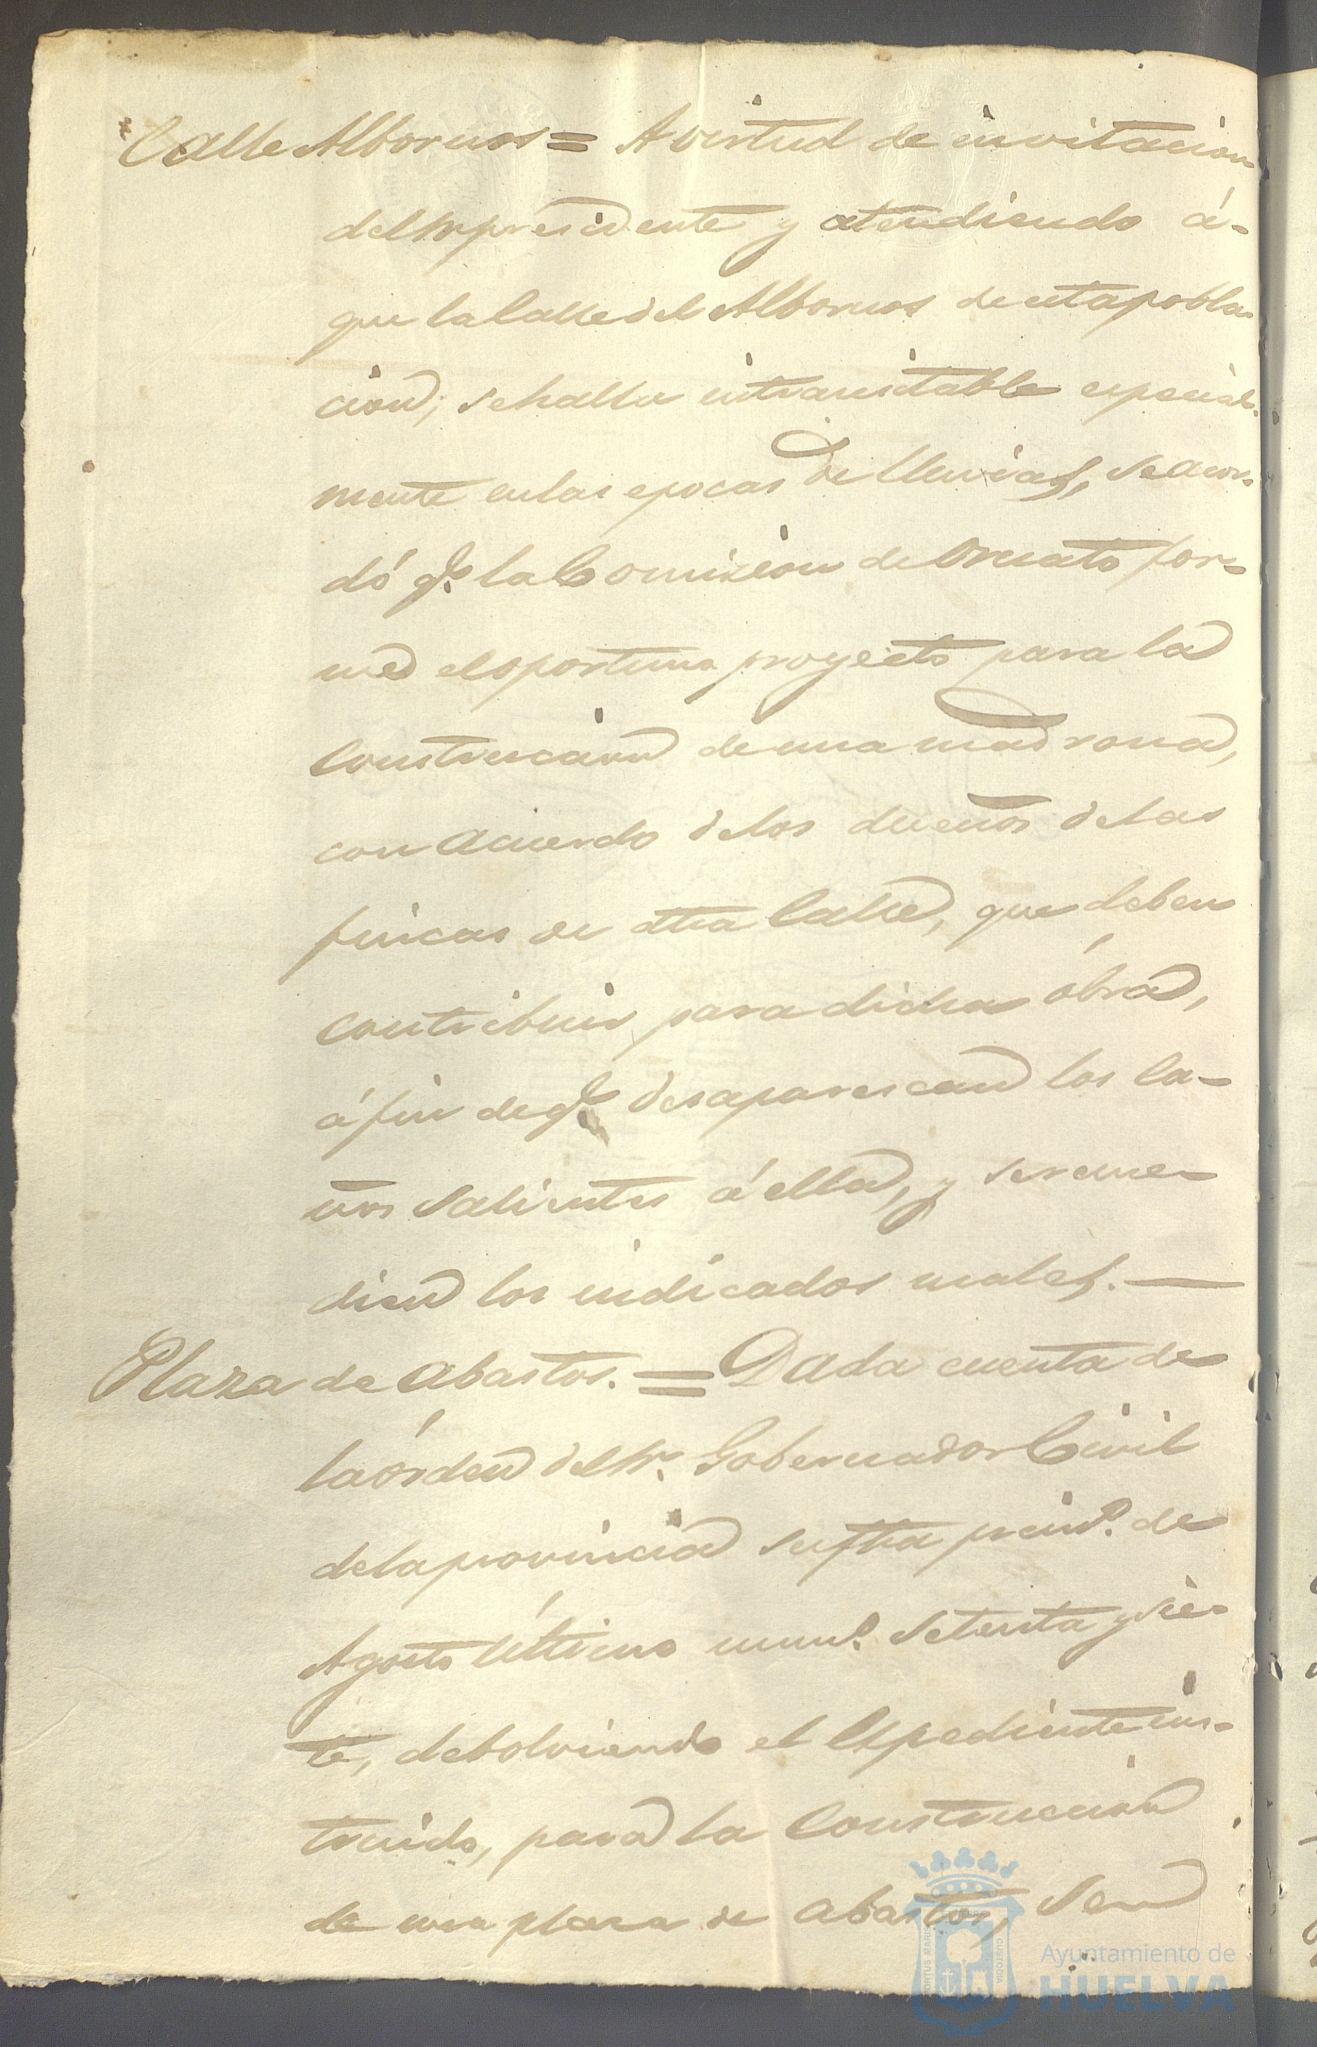 Calle Albornos = A virtud de invitacion
del Sr presidente y atendiendo á-
que la Calle del Albornos de esta pobla-
cion, se halla intransitable especial-
mente en las epocas de lluvias, se acor-
dó q.e la Comision de Ornato for-
me el oportuno proyecto para la
Construcion de una madrona,
con acuerdo de los dueños de las
fincas de dha Calle, que deben
Contribuir para dicha óbra,
á fin de q.e desaparescan los ca-
ños salientes á ella, y se reme-
dien los indicados males. —
Plaza de Abastos. = Dada cuenta de
la órden del Sr. Gobernador Civil
de la provincia su fha prim.o de
Agosto último num.o setenta y sie-
te, debolviendo el Espediente ins-
truido, para la Construccion
de una plaza de abastos, se
Ayuntamiento de
HUELVA